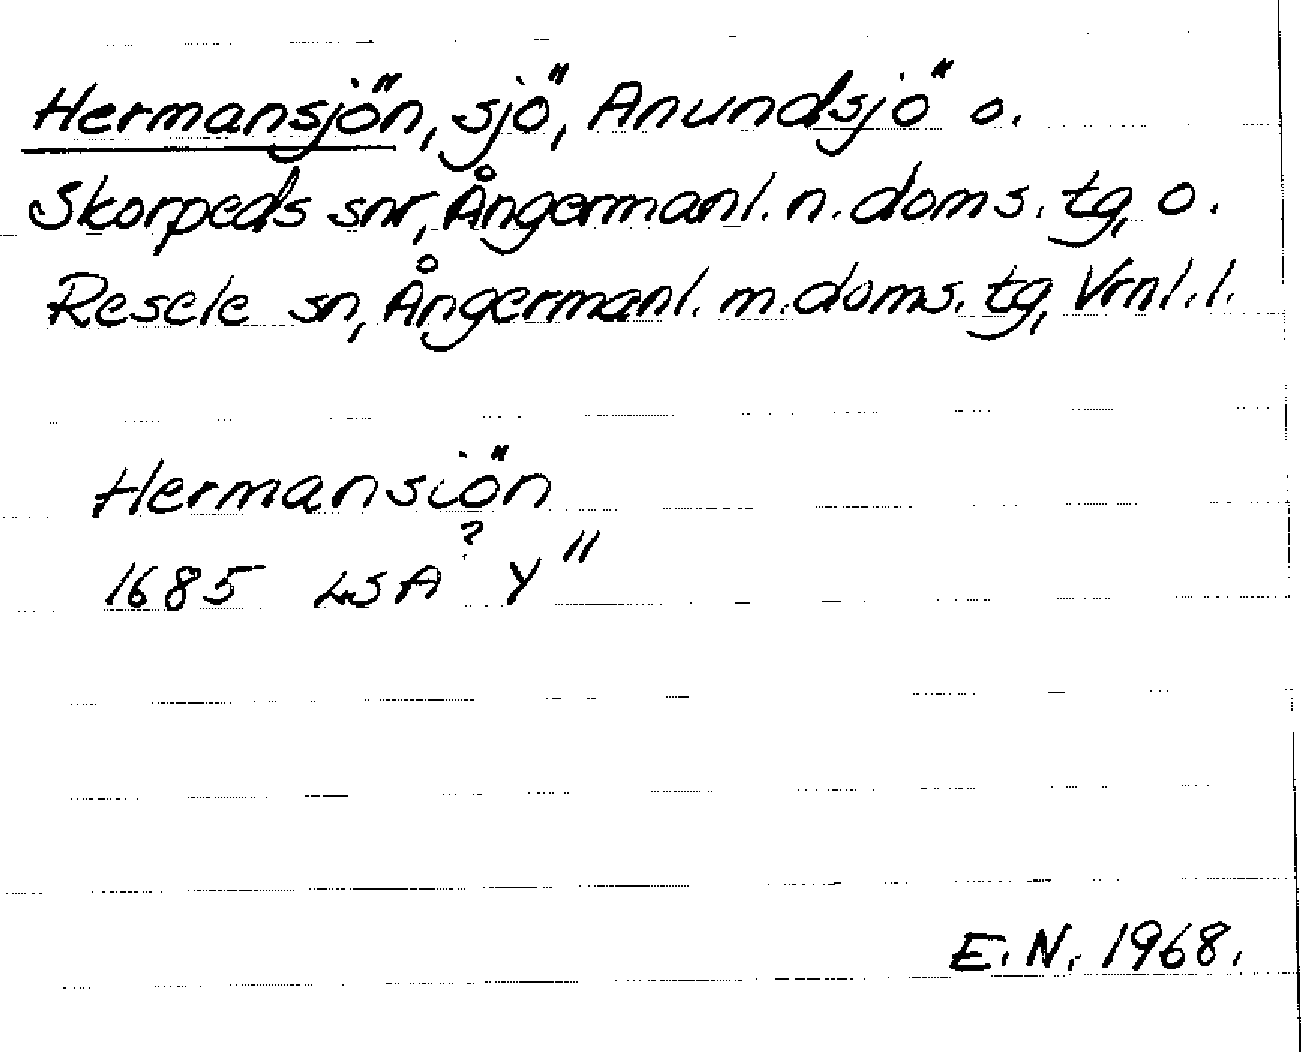 Hermansjön, sjö, Anundsjö o.
Skorpeds snr, Ångermanl. n. doms. tg, o.
Resele sn, Ångermanl. m. doms. tg, Vrnl. l.
Hermansiön
1685 LSA ? Y"
E.N. 1968.